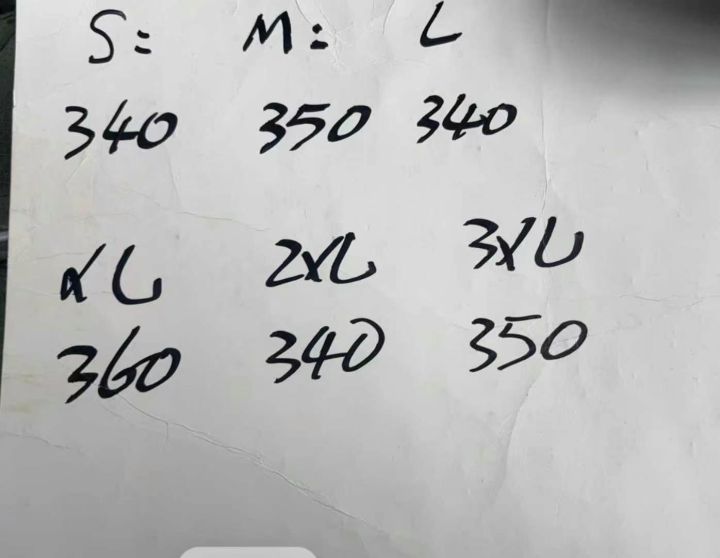 S: M: L
340 350 340
XL 2XL 3XL
360 340 350